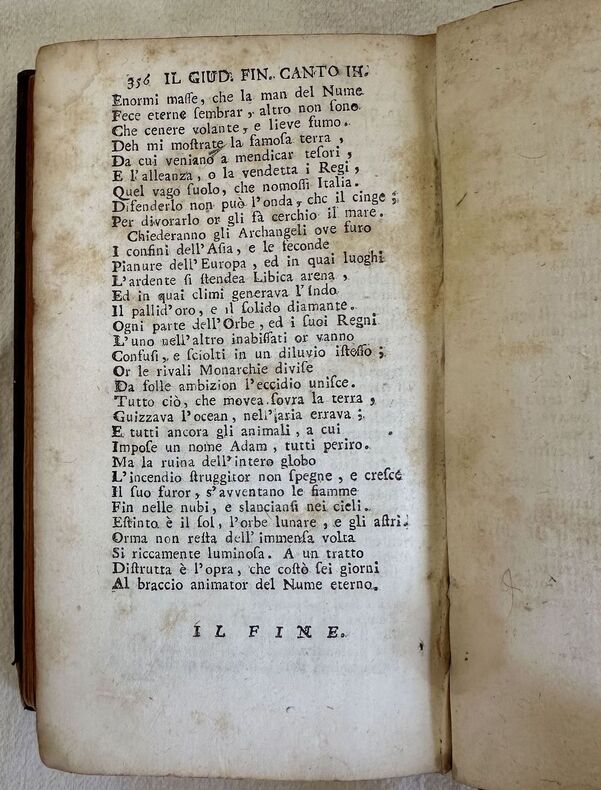 356 IL GIUD. FIN. CANTO III.
Enormi maſſe, che la man del Nume
Fece eterne ſembrar, altro non ſono
Che cenere volante, e lieve fumo.
Deh mi moſtrate la famoſa terra,
Da cui veniano a mendicar teſori,
E l'alleanza, o la vendetta i Regi,
Quel vago ſuolo, che nomoſſi Italia.
Difenderlo non può l'onda, che il cinge;
Per divorarlo or gli fà cerchio il mare.
Chiederanno gli Archangeli ove furo
I confini dell'Aſia, e le feconde
Pianure dell'Europa, ed in quai luoghi
L'ardente ſi ſtendea Libica arena,
Ed in quai climi generava l'Indo
Il pallid'oro, e il ſolido diamante.
Ogni parte dell'Orbe, ed i ſuoi Regni
L'uno nell'altro inabiſſati or vanno
Confuſi, e ſciolti in un diluvio iſteſſo;
Or le rivali Monarchie diviſe
Da folle ambizion l'eccidio uniſce.
Tutto ciò, che movea ſovra la terra,
Guizzava l'ocean, nell'aria errava;
E tutti ancora gli animali, a cui
Impoſe un nome Adam, tutti periro.
Ma la ruina dell'intero globo
L'incendio ſtruggitor non ſpegne, e creſce
Il ſuo furor, s'avventano le fiamme
Fin nelle nubi, e slancianſi nei cieli.
Eſtinto è il ſol, l'orbe lunare, e gli aſtri.
Orma non reſta dell'immenſa volta
Si riccamente luminoſa. A un tratto
Diſtrutta è l'opra, che coſtò ſei giorni
Al braccio animator del Nume eterno.
IL FINE.